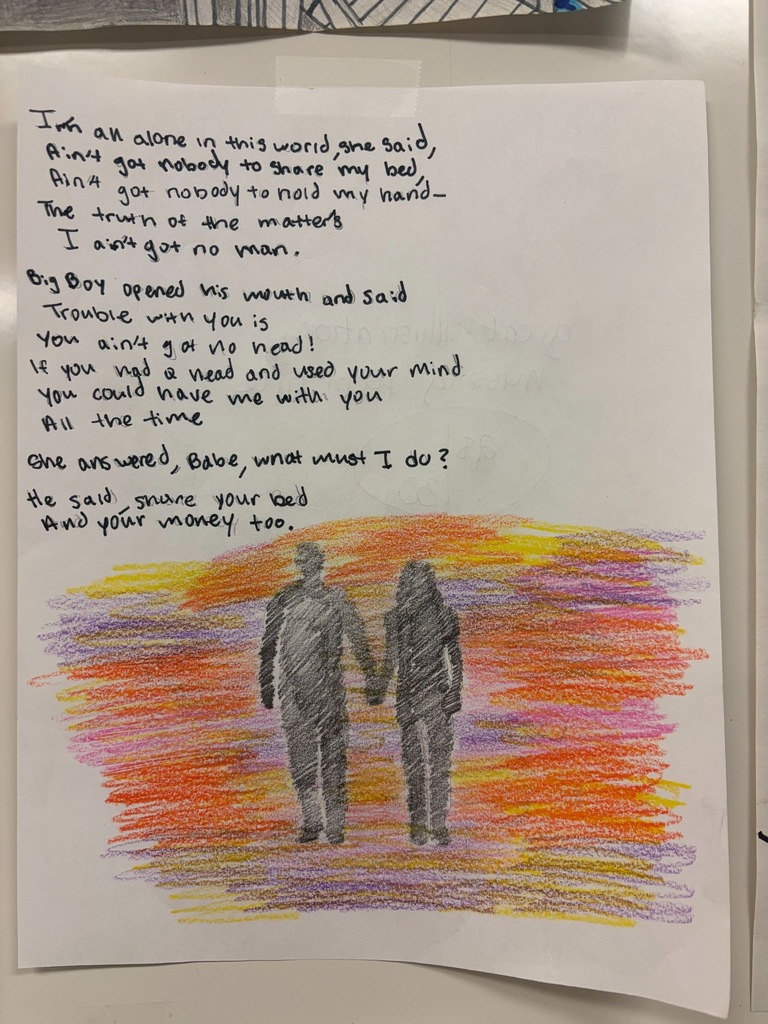 I'm all alone in this world, she said,
Ain't got nobody to share my bed,
Ain't got nobody to hold my hand—
The truth of the matter's
I ain't got no man.
Big Boy opened his mouth and said
Trouble with you is
You ain't got no head!
If you had a head and used your mind
You could have me with you
All the time
She answered, Babe, what must I do?
He said, share your bed
And your money too.